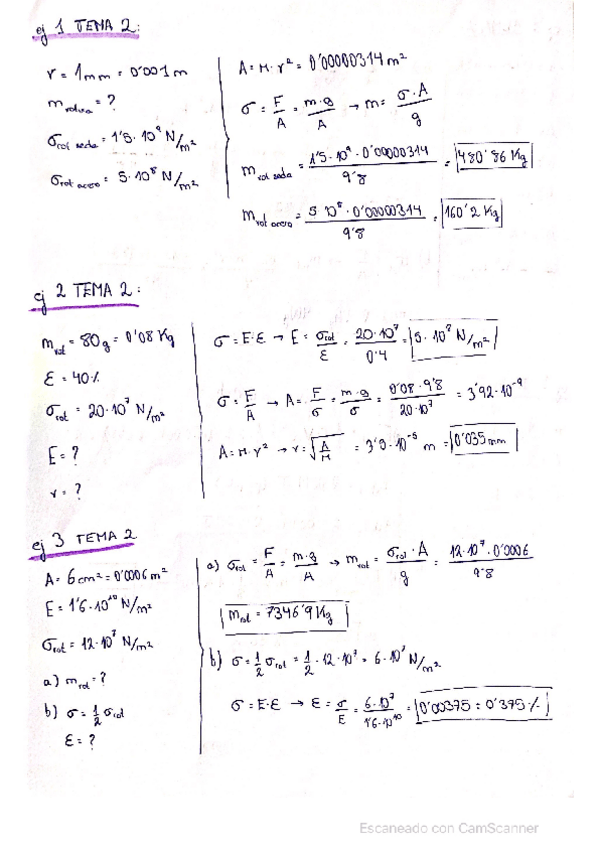 ej 1 TEMA 2:
r = 1mm = 0'001 m
m rotura = ?
σ rot seda = 1'5·10⁹ N/m²
σ rot acero = 5·10⁸ N/m²
A = π·r² = 0'00000314 m²
σ = F/A = m·g/A → m = σ·A/g
m rot seda = 1'5·10⁹·0'00000314/9'8 = 480'86 Kg
m rot acero = 5·10⁸·0'00000314/9'8 = 160'2 Kg
ej 2 TEMA 2:
m rot = 80g = 0'08 Kg
ε = 40%
σ rot = 20·10⁷ N/m²
E = ?
r = ?
σ = E·ε → E = σ rot/ε = 20·10⁷/0'4 = 5·10⁸ N/m²
σ = F/A → A = F/σ = m·g/σ = 0'08·9'8/20·10⁷ = 3'92·10⁻⁹
A = π·r² → r = √A/π = 3'5·10⁻⁵ m = 0'035 mm
ej 3 TEMA 2
A = 6cm² = 0'0006 m²
E = 1'6·10¹⁰ N/m²
σ rot = 12·10⁷ N/m²
a) m rot = ?
b) σ = 1/2 σ rot
ε = ?
a) σ rot = F/A = m·g/A → m rot = σ rot·A/g = 12·10⁷·0'0006/9'8
m rot = 7346'9 Kg
b) σ = 1/2 σ rot = 1/2·12·10⁷ = 6·10⁷ N/m²
σ = E·ε → ε = σ/E = 6·10⁷/1'6·10¹⁰ = 0'00375 = 0'375%
Escaneado con CamScanner